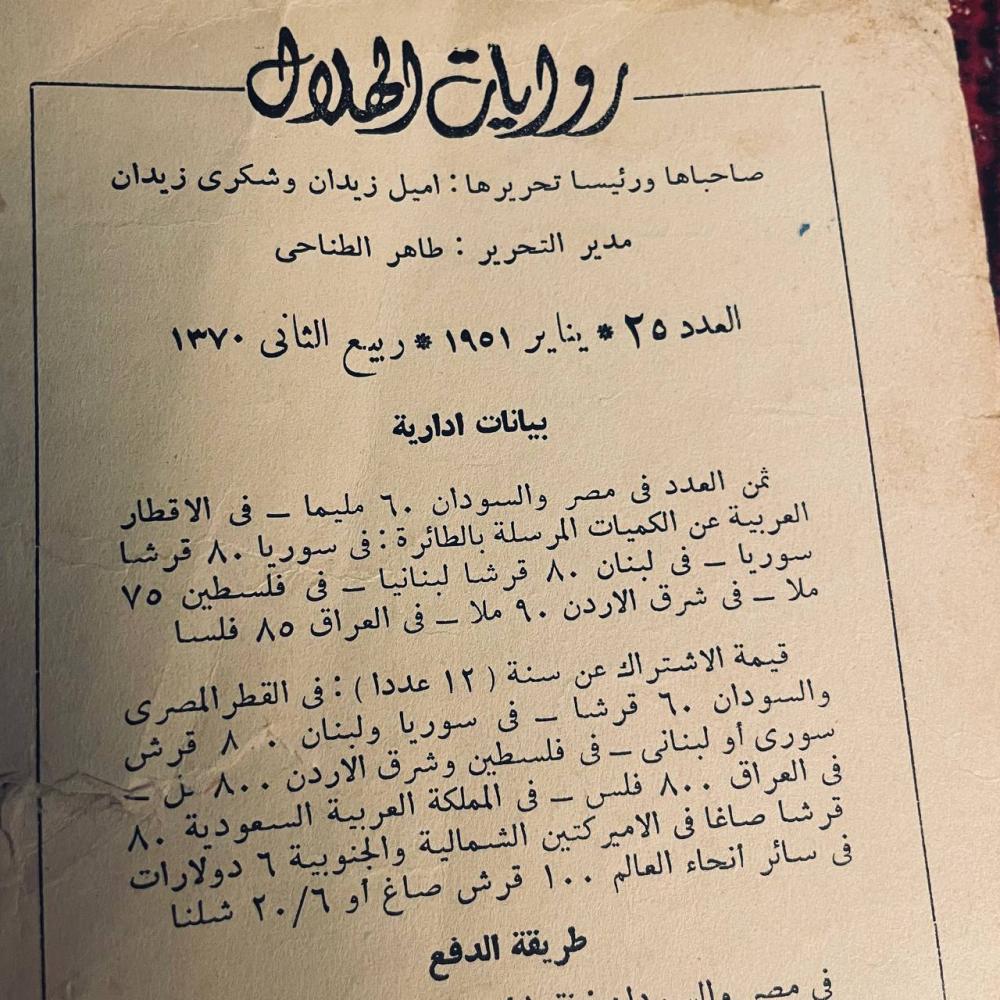 روايات الهلال
صاحباها ورئيسا تحريرها : اميل زيدان وشكرى زيدان
مدير التحرير : طاهر الطناحى
العدد ٢٥ * يناير ١٩٥١ * ربيع الثانى ١٣٧٠
بيانات ادارية
ثمن العدد فى مصر والسودان ٦٠ مليما ــ فى الاقطار
العربية عن الكميات المرسلة بالطائرة : فى سوريا ٨٠ قرشا
سوريا ــ فى لبنان ٨٠ قرشا لبنانيا ــ فى فلسطين ٧٥
ملا ــ فى شرق الاردن ٩٠ ملا ــ فى العراق ٨٥ فلسا
قيمة الاشتراك عن سنة ( ١٢ عددا ) : فى القطر المصرى
والسودان ٦٠ قرشا ــ فى سوريا ولبنان قرش
سورى أو لبنانى ــ فى فلسطين وشرق الاردن ٨٠٠ ــ
فى العراق ٨٠٠ فلس ــ فى المملكة العربية السعودية ٨٠
قرشا صاغا فى الاميركتين الشمالية والجنوبية ٦ دولارات
فى سائر أنحاء العالم ١٠٠ قرش صاغ أو ٢٠/٦ شلنا
طريقة الدفع
فى مصر والسودان :